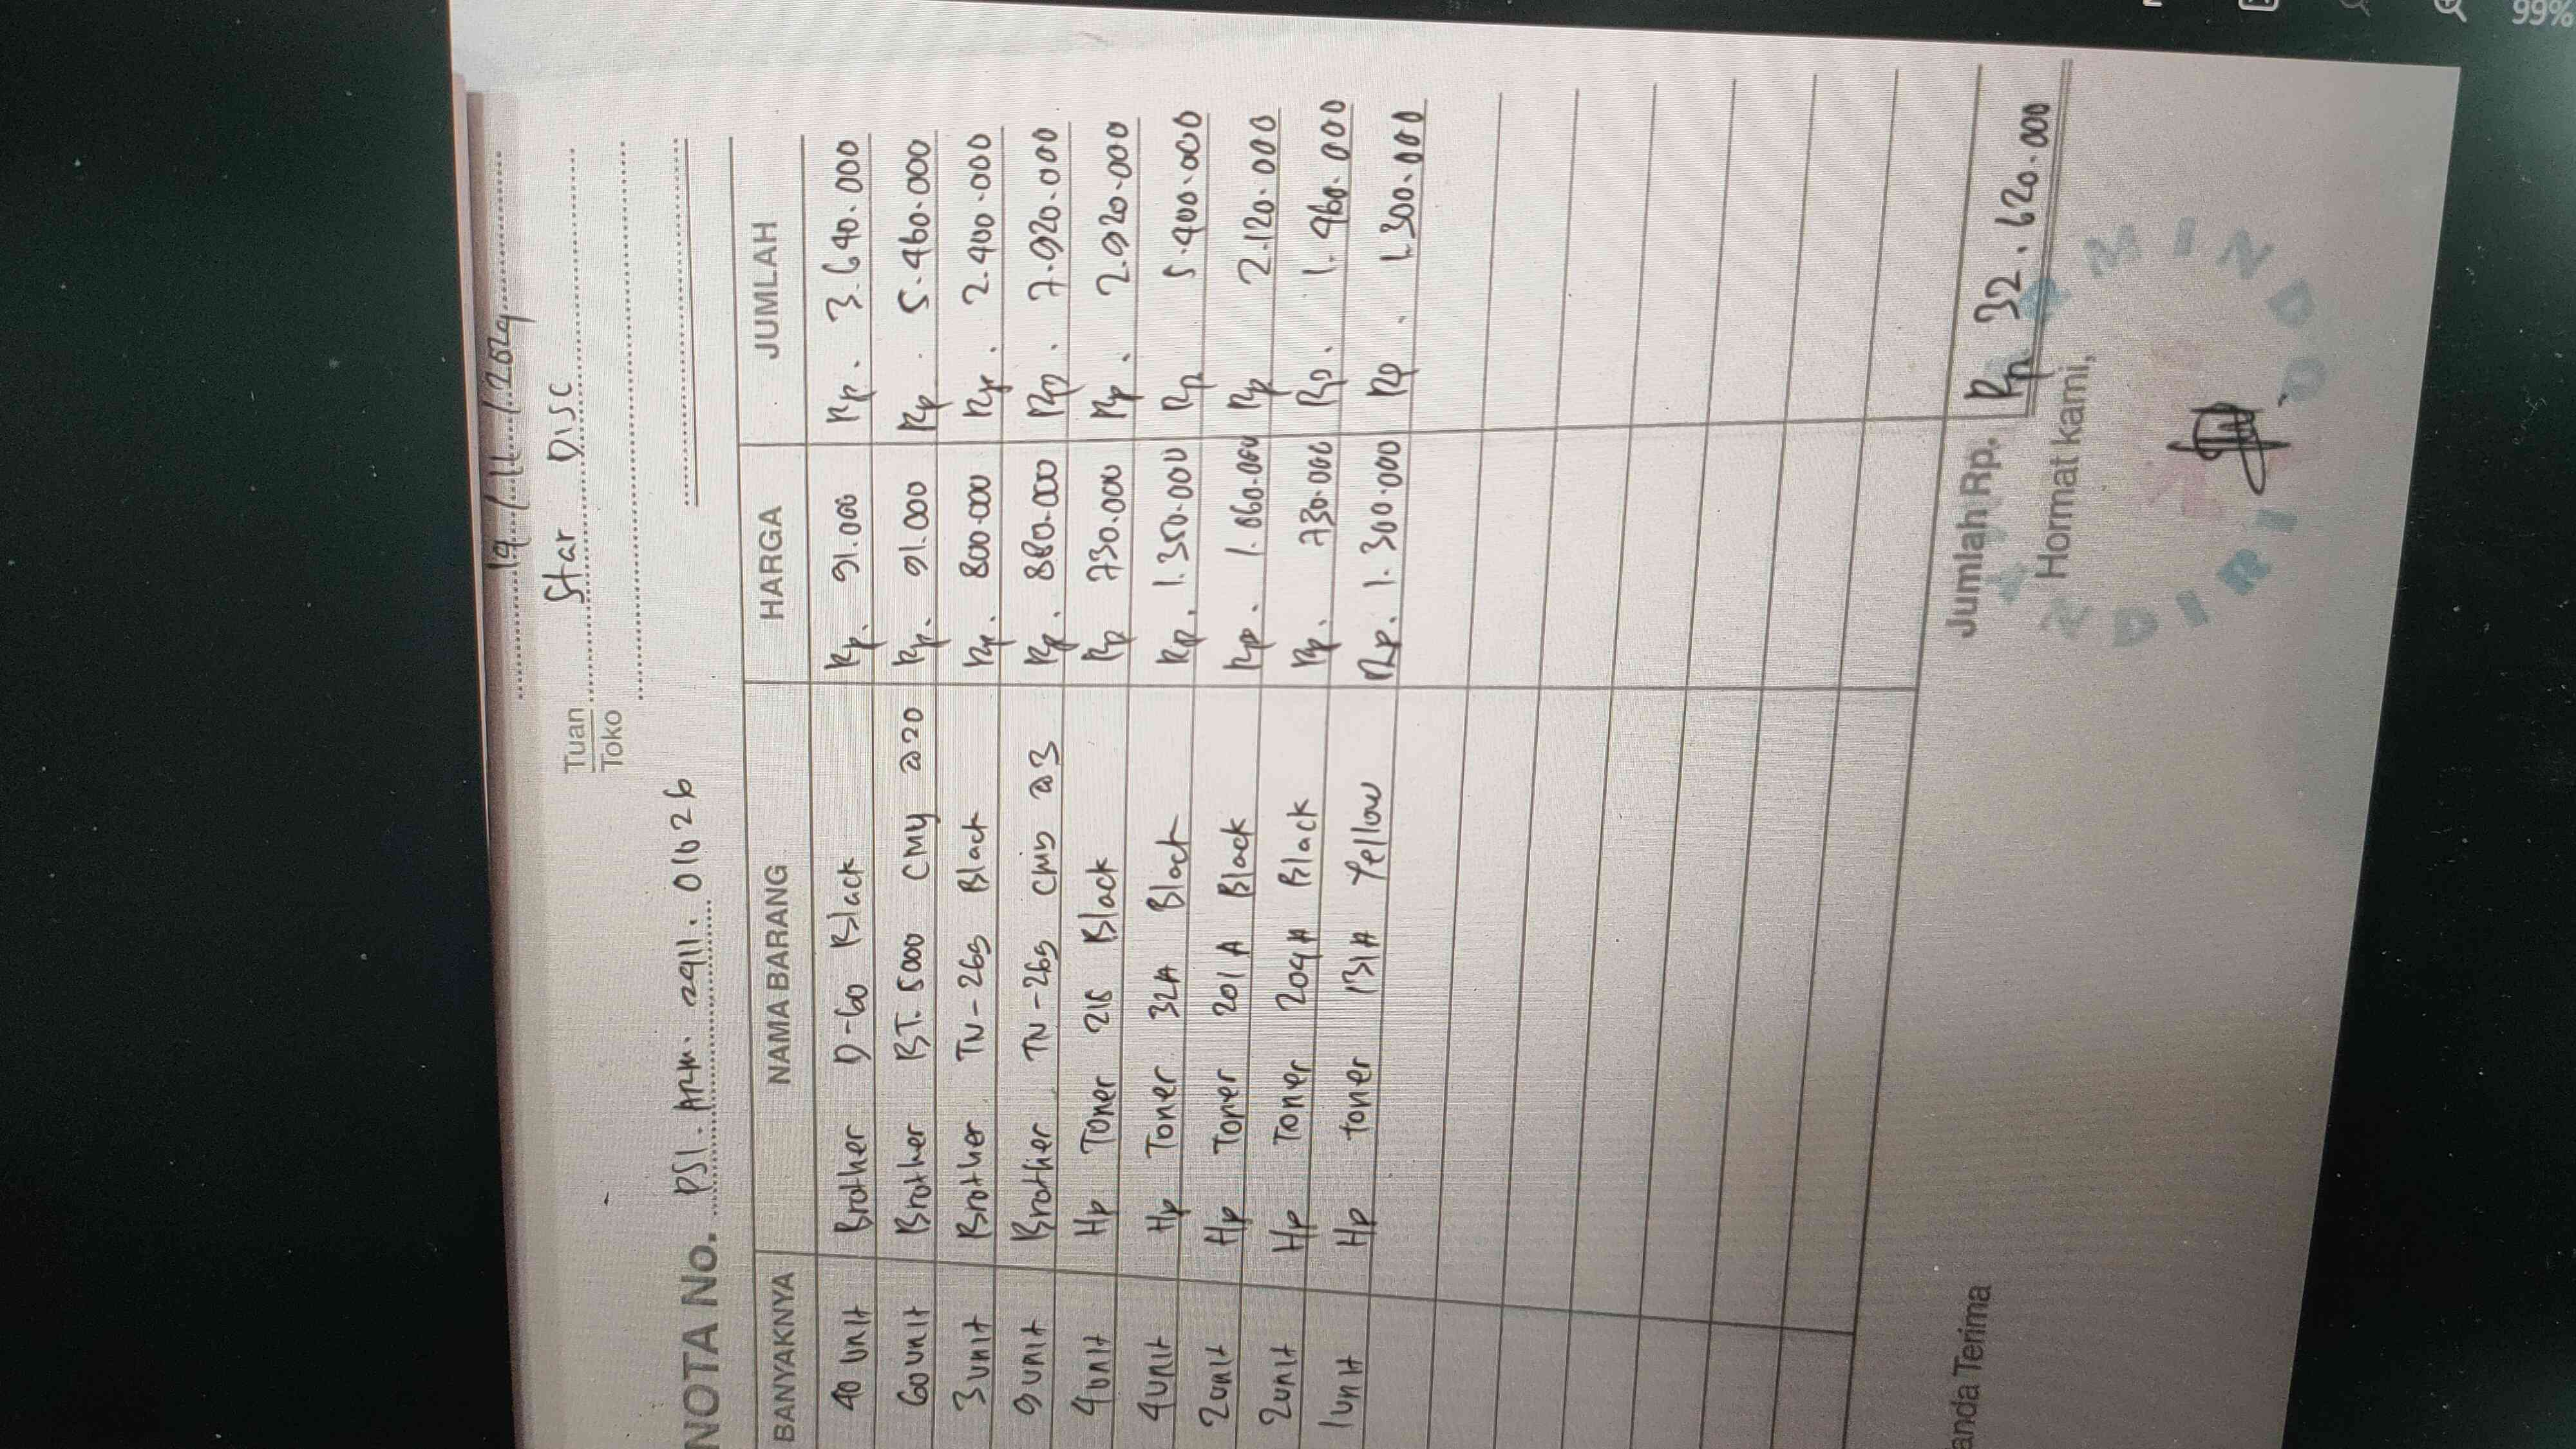 99%
19 / 11 / 2024
Tuan Star Disc
Toko
NOTA No. PSI. AZM. 2411. 01026
BANYAKNYA NAMA BARANG HARGA JUMLAH
40 unit Brother D-60 Black Rp. 91.000 Rp. 3.640.000
60 unit Brother BT. 5000 CMY @20 Rp. 91.000 Rp. 5.460.000
3 unit Brother TN-265 Black Rp. 800.000 Rp. 2.400.000
9 unit Brother TN-265 CMY @3 Rp. 880.000 Rp. 7.920.000
4 unit Hp Toner 216 Black Rp 730.000 Rp. 2.920.000
4 unit Hp Toner 32A Black Rp. 1.350.000 Rp 5.400.000
2 unit Hp Toner 201A Black Rp. 1.060.000 Rp 2.120.000
2 unit Hp Toner 204A Black Rp. 730.000 Rp. 1.460.000
1 unit Hp toner 131A Yellow Rp. 1.300.000 Rp. 1.300.000
Jumlah Rp. Rp 32.620.000
anda Terima Hormat kami,